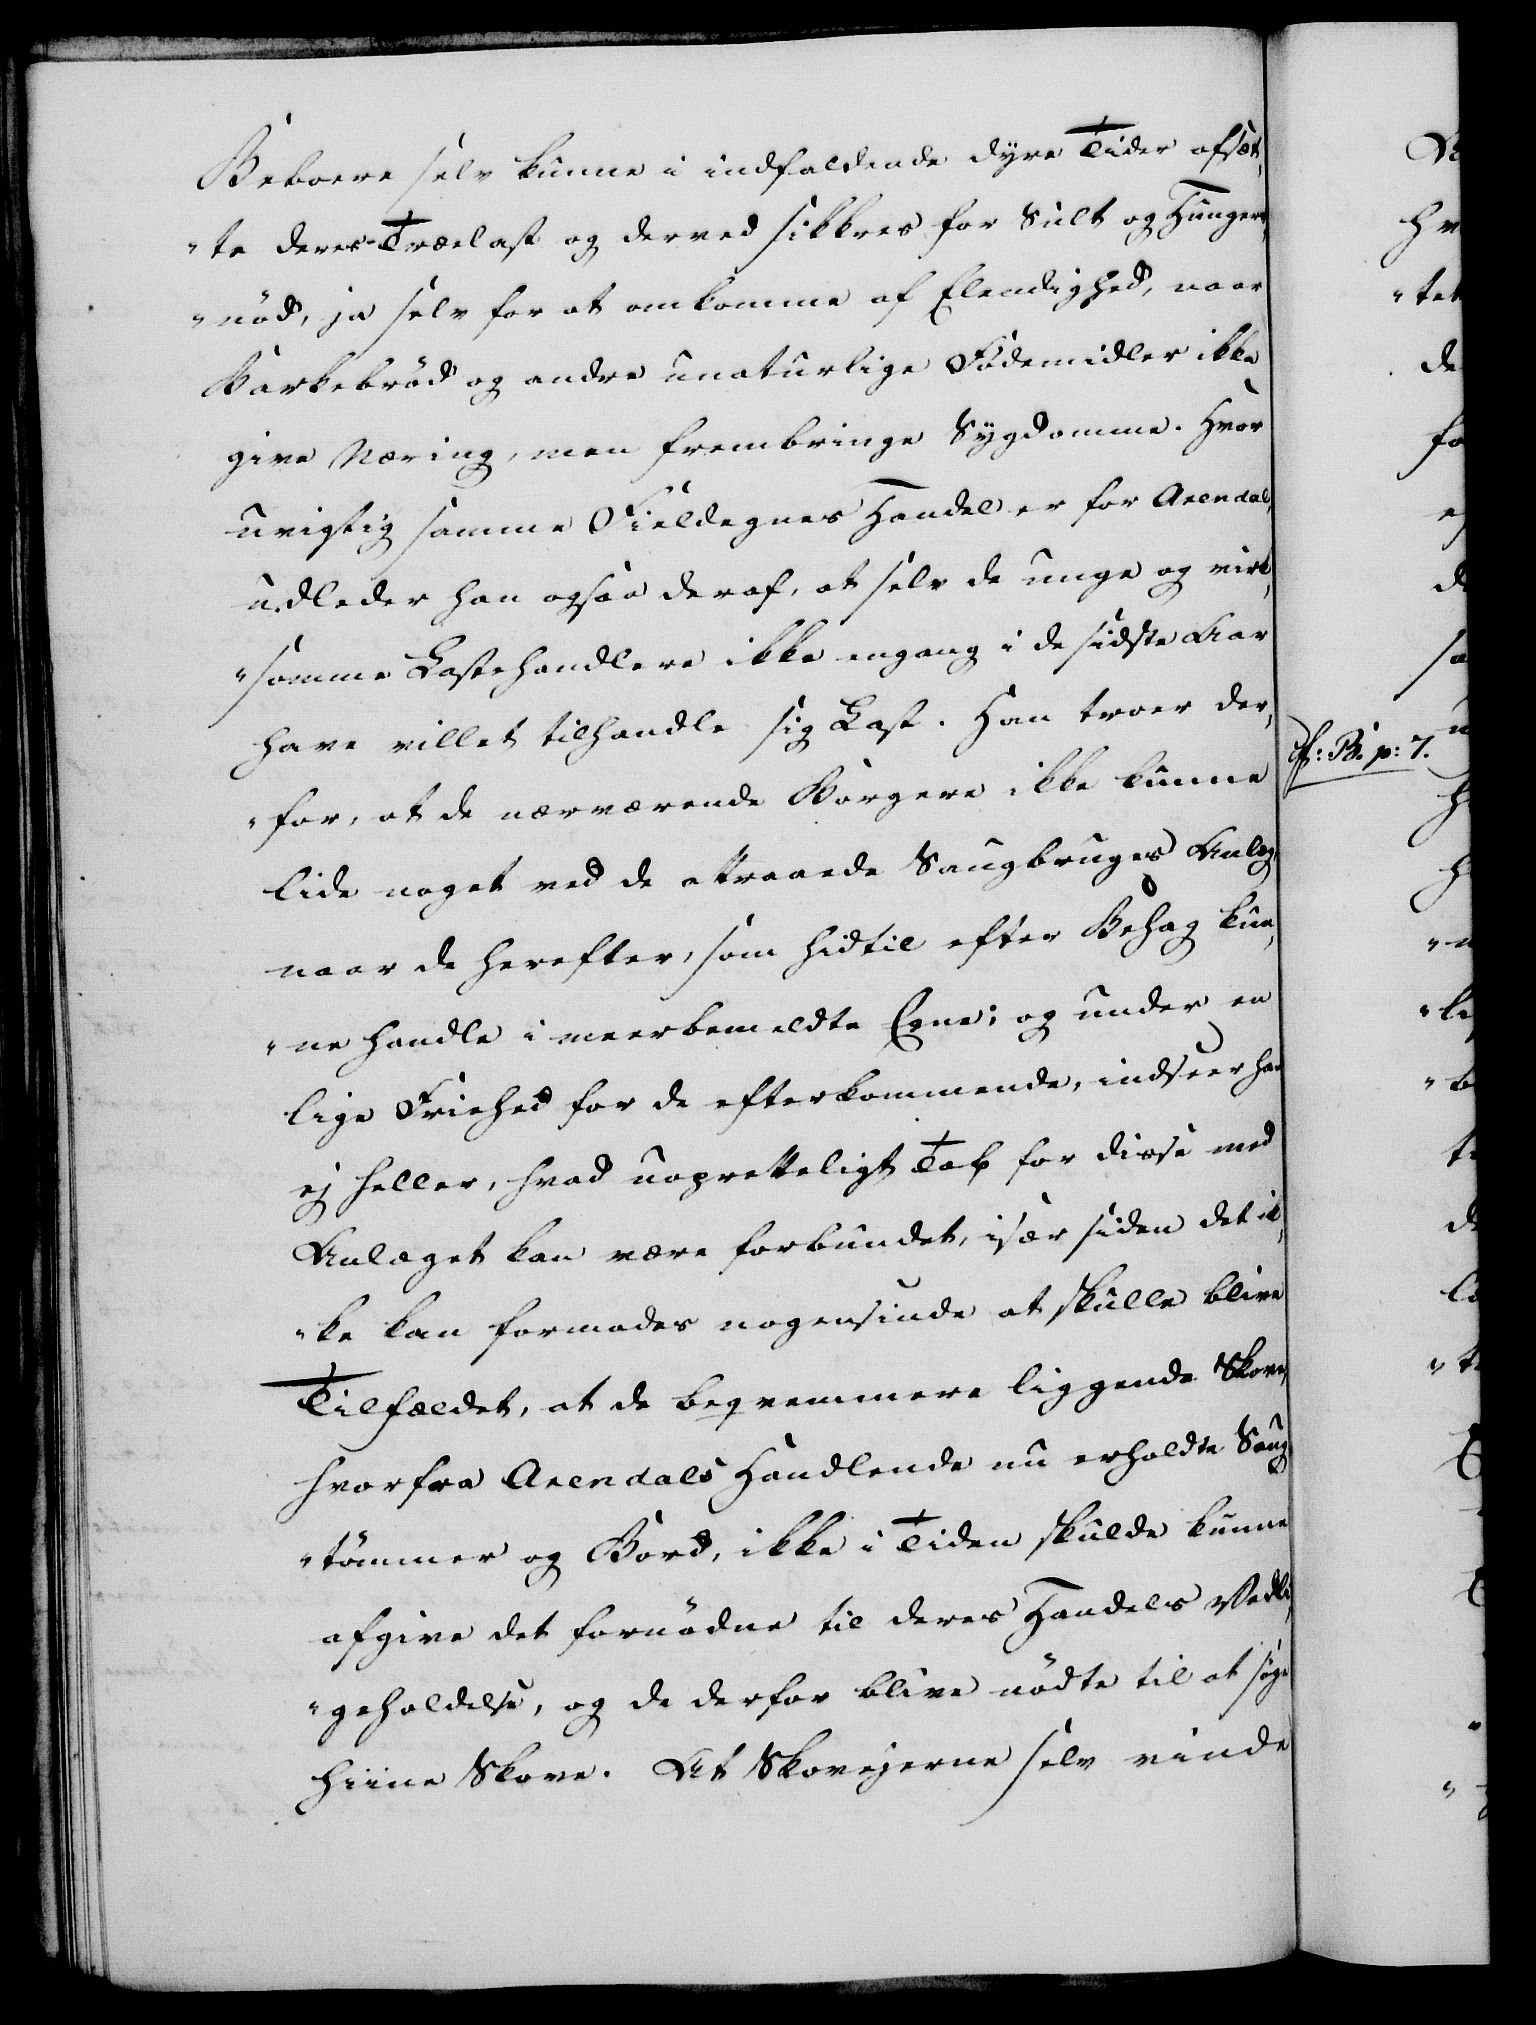 Beboere selv kunne i indfaldende dyre Tider afsæt„
„te deres Trælast og derved sikkres for Sult og Hungers„
„nöd, ja selv for at omkomme af Elendighed, naar
Barkebröd og andre unaturlige Födemidler ikke
give Næring, men frembringe Sygdomme. Hvor
uvigtig samme Fieldegnes Handel er for Arendal,
udleder han ogsaa deraf, at selv de unge og virk„
„somme Lasthandlere ikke engang i de sidste Aar
have villet tilhandle sig Last. Han troer der„
„for, at de nærværende Borgere ikke kunne
lide noget ved de attraaede Saugbruges Anlæg,
naar de herefter, som hidtil efter Behag kun„
„ne handle i meerbemeldte Egne; og under en
lige Friehed for de efterkommende, indseer han
ej heller, hvad uopretteligt Tab for disse med
Anlæget kan være forbundet, især siden det ik„
„ke kan formodes nogensinde at skulle blive
Tilfældet, at de beqvemmere liggende Skove,
hvorfra Arendals Handlende nu erholdte Saug„
„tömmer og Bord, ikke i Tiden skulde kunne
afgive det fornödne til deres Handels Vedli„
„geholdelse, og de derfor blive nödte til at söge
hiine Skove. At Skovejerne selv vinde
cf: B. p: 7.